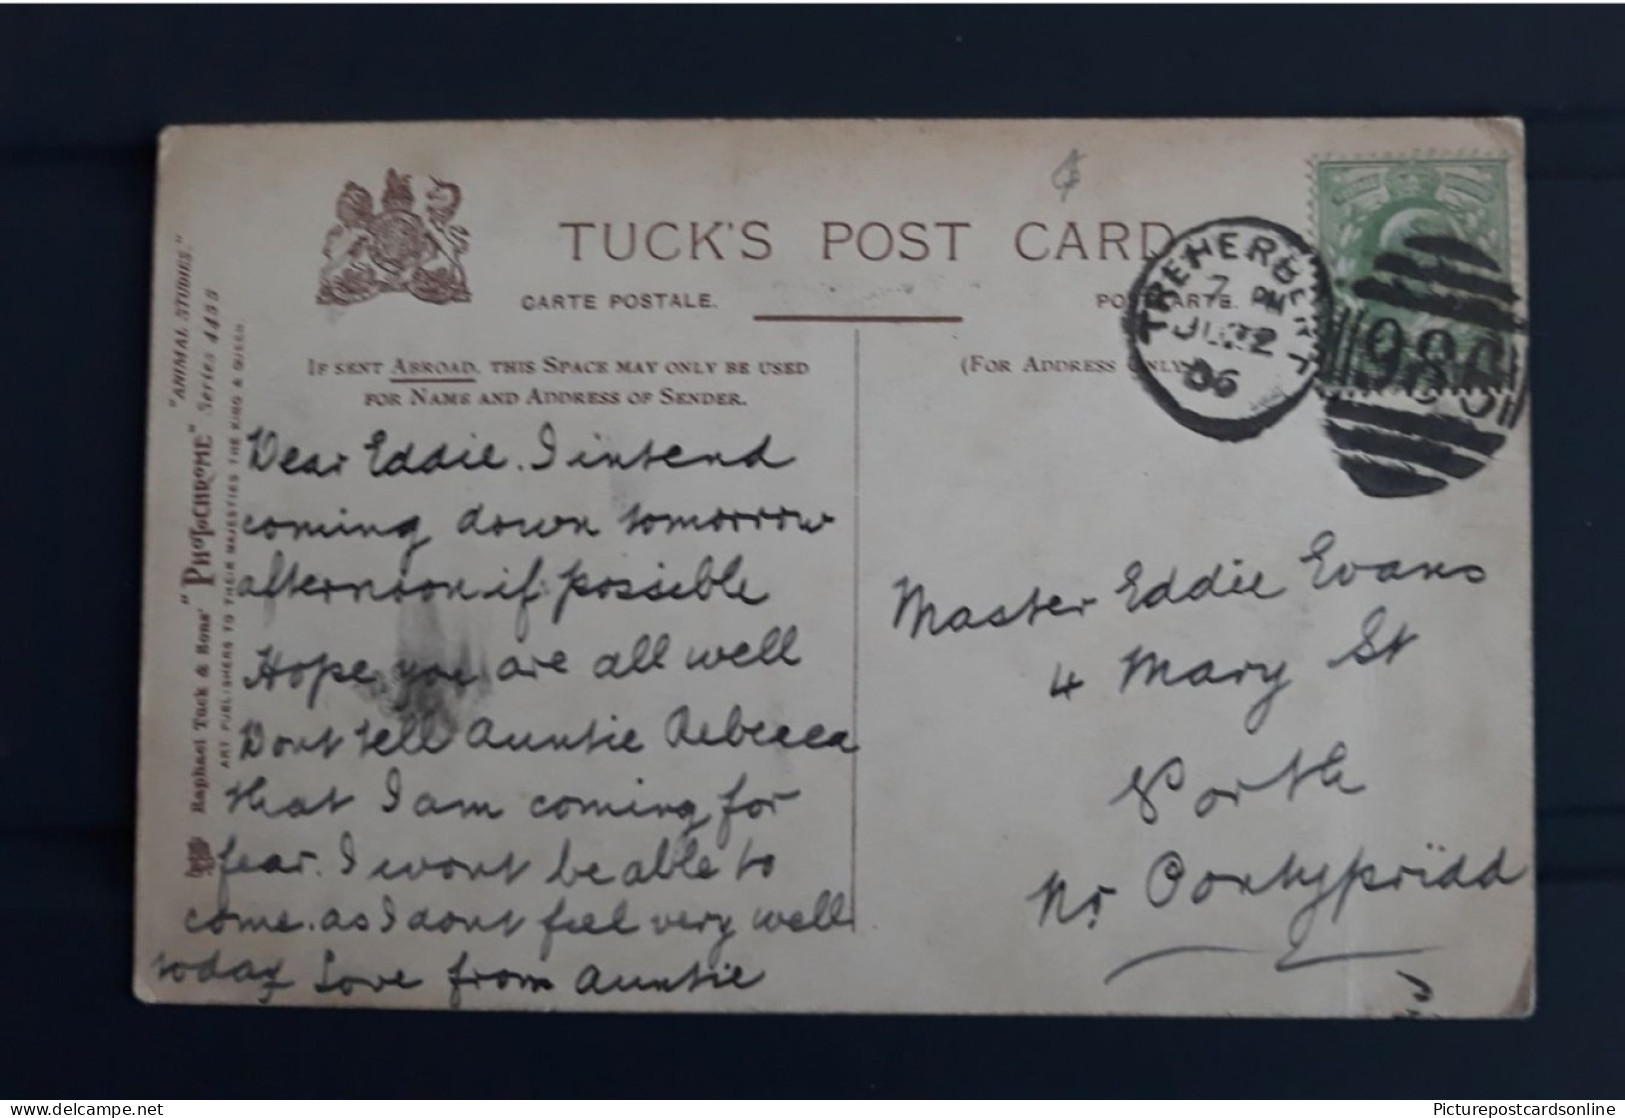 TUCK'S POST CARD
CARTE POSTALE.
POSTKARTE.
IF SENT ABROAD, THIS SPACE MAY ONLY BE USED
FOR NAME AND ADDRESS OF SENDER.
(FOR ADDRESS ONLY)
"ANIMAL STUDIES."
Raphael Tuck & Sons' "PHOTOCHROME" Series 4433
ART PUBLISHERS TO THEIR MAJESTIES THE KING & QUEEN.
Dear Eddie. I intend
coming down tomorrow
afternoon if possible
Hope you are all well
Dont tell Auntie Rebecca
that I am coming for
fear. I wont be able to
come. as I dont feel very well
today Love from Auntie
TREHERBERT
7 PM
06
986
Master Eddie Evans
4 Mary St
Porth
Nr Pontypridd
delcampe.net
Picturepostcardsonline